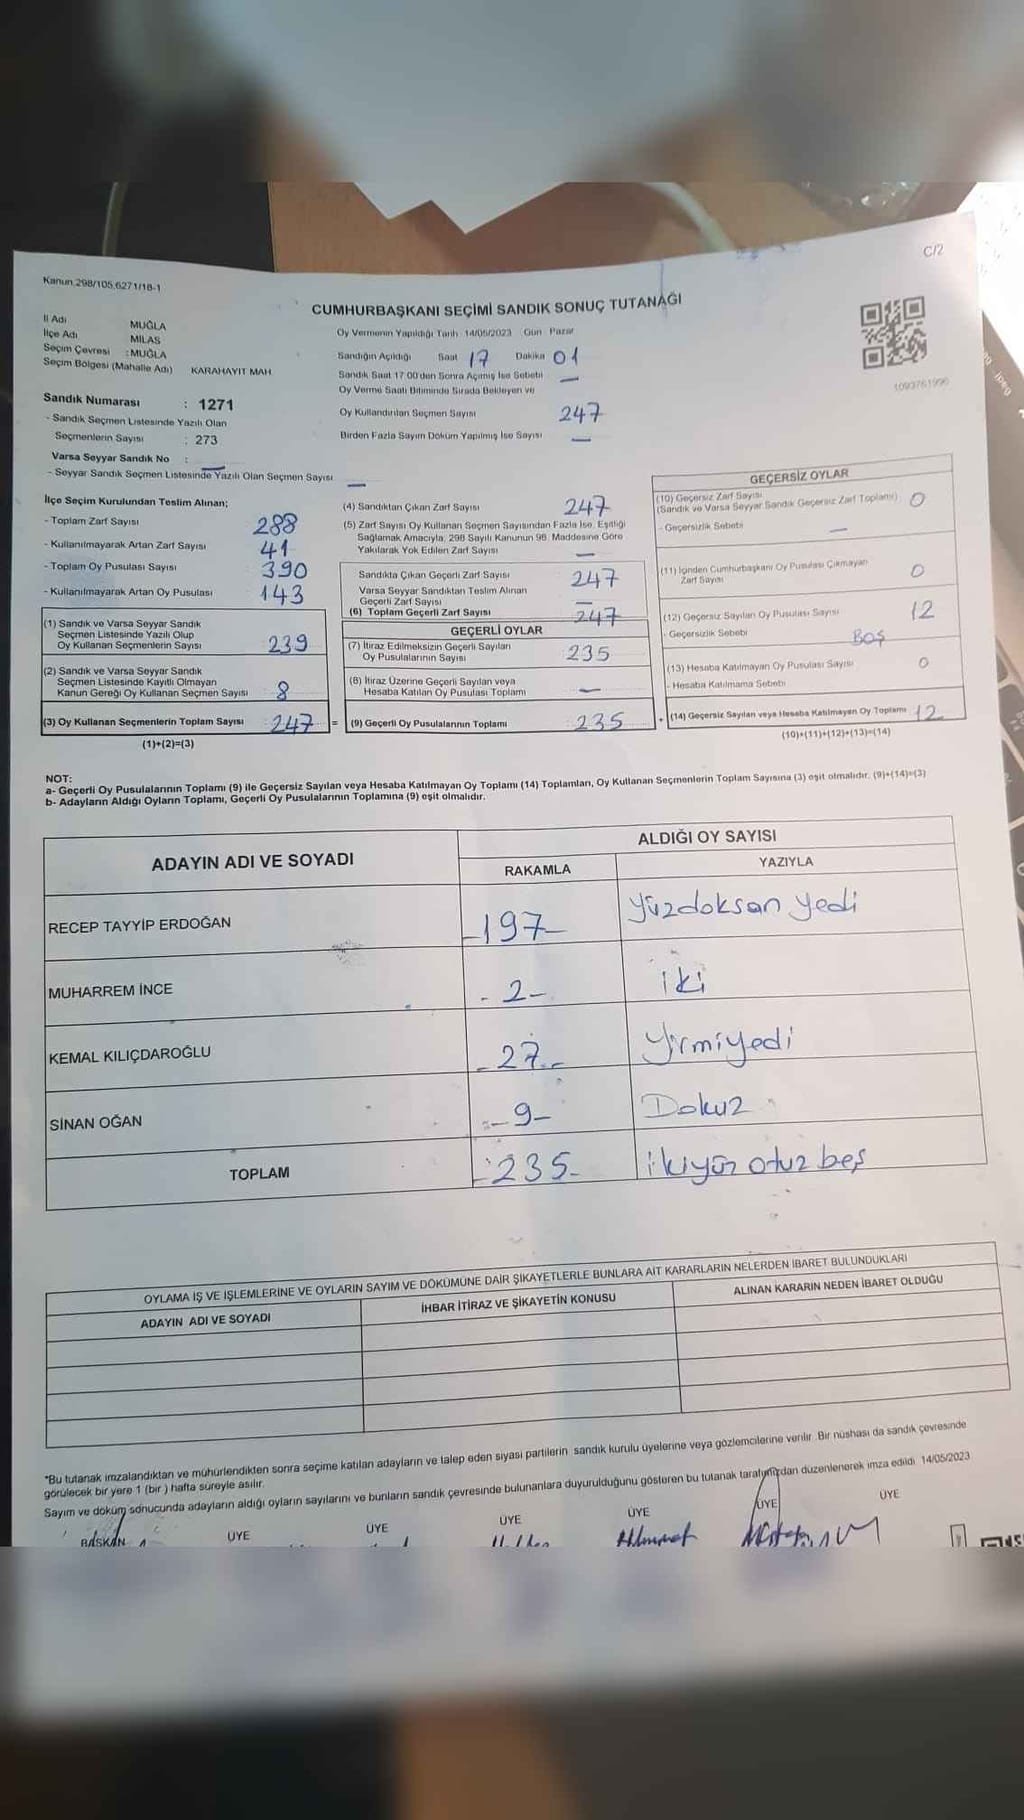 C/2
Kanun 298/105,6271/18-1
CUMHURBAŞKANI SEÇİMİ SANDIK SONUÇ TUTANAĞI
İl Adı MUĞLA
İlçe Adı MİLAS
Seçim Çevresi : MUĞLA
Seçim Bölgesi (Mahalle Adı) KARAHAYIT MAH
Sandık Numarası : 1271
- Sandık Seçmen Listesinde Yazılı Olan
Seçmenlerin Sayısı : 273
Varsa Seyyar Sandık No : —
- Seyyar Sandık Seçmen Listesinde Yazılı Olan Seçmen Sayısı —
Oy Vermenin Yapıldığı Tarih 14/05/2023 Gün Pazar
Sandığın Açıldığı Saat 17 Dakika 01
Sandık Saat 17.00'den Sonra Açılmış İse Sebebi —
Oy Verme Saati Bitiminde Sırada Bekleyen ve
Oy Kullandırılan Seçmen Sayısı 247
Birden Fazla Sayım Döküm Yapılmış İse Sayısı —
1093761996
İlçe Seçim Kurulundan Teslim Alınan;
- Toplam Zarf Sayısı 288
- Kullanılmayarak Artan Zarf Sayısı 41
- Toplam Oy Pusulası Sayısı 390
- Kullanılmayarak Artan Oy Pusulası 143
(1) Sandık ve Varsa Seyyar Sandık
Seçmen Listesinde Yazılı Olup
Oy Kullanan Seçmenlerin Sayısı 239
(2) Sandık ve Varsa Seyyar Sandık
Seçmen Listesinde Kayıtlı Olmayan
Kanun Gereği Oy Kullanan Seçmen Sayısı 8
(3) Oy Kullanan Seçmenlerin Toplam Sayısı 247 =
(1)+(2)=(3)
(4) Sandıktan Çıkan Zarf Sayısı 247
(5) Zarf Sayısı Oy Kullanan Seçmen Sayısından Fazla İse, Eşitliği
Sağlamak Amacıyla, 298 Sayılı Kanunun 98. Maddesine Göre
Yakılarak Yok Edilen Zarf Sayısı —
Sandıkta Çıkan Geçerli Zarf Sayısı 247
Varsa Seyyar Sandıktan Teslim Alınan
Geçerli Zarf Sayısı —
(6) Toplam Geçerli Zarf Sayısı 247
GEÇERLİ OYLAR
(7) İtiraz Edilmeksizin Geçerli Sayılan
Oy Pusulalarının Sayısı 235
(8) İtiraz Üzerine Geçerli Sayılan veya
Hesaba Katılan Oy Pusulası Toplamı —
(9) Geçerli Oy Pusulalarının Toplamı 235 +
GEÇERSİZ OYLAR
(10) Geçersiz Zarf Sayısı
(Sandık ve Varsa Seyyar Sandık Geçersiz Zarf Toplamı) 0
- Geçersizlik Sebebi —
(11) İçinden Cumhurbaşkanı Oy Pusulası Çıkmayan
Zarf Sayısı 0
(12) Geçersiz Sayılan Oy Pusulası Sayısı 12
- Geçersizlik Sebebi BOŞ
(13) Hesaba Katılmayan Oy Pusulası Sayısı 0
- Hesaba Katılmama Sebebi
(14) Geçersiz Sayılan veya Hesaba Katılmayan Oy Toplamı 12
(10)+(11)+(12)+(13)=(14)
NOT:
a- Geçerli Oy Pusulalarının Toplamı (9) ile Geçersiz Sayılan veya Hesaba Katılmayan Oy Toplamı (14) Toplamları, Oy Kullanan Seçmenlerin Toplam Sayısına (3) eşit olmalıdır. (9)+(14)=(3)
b- Adayların Aldığı Oyların Toplamı, Geçerli Oy Pusulalarının Toplamına (9) eşit olmalıdır.
ADAYIN ADI VE SOYADI ALDIĞI OY SAYISI
RAKAMLA YAZIYLA
RECEP TAYYİP ERDOĞAN -197- Yüzdoksan yedi
MUHARREM İNCE - 2- iki
KEMAL KILIÇDAROĞLU - 27 - Yirmiyedi
SİNAN OĞAN - 9- Dokuz
TOPLAM -235- ikiyüz otuz beş
OYLAMA İŞ VE İŞLEMLERİNE VE OYLARIN SAYIM VE DÖKÜMÜNE DAİR ŞİKAYETLERLE BUNLARA AİT KARARLARIN NELERDEN İBARET BULUNDUKLARI
ADAYIN ADI VE SOYADI İHBAR İTİRAZ VE ŞİKAYETİN KONUSU ALINAN KARARIN NEDEN İBARET OLDUĞU
*Bu tutanak imzalandıktan ve mühürlendikten sonra seçime katılan adayların ve talep eden siyasi partilerin sandık kurulu üyelerine veya gözlemcilerine verilir. Bir nüshası da sandık çevresinde
görülecek bir yere 1 (bir) hafta süreyle asılır.
Sayım ve döküm sonucunda adayların aldığı oyların sayılarını ve bunların sandık çevresinde bulunanlara duyurulduğunu gösteren bu tutanak tarafımızdan düzenlenerek imza edildi. 14/05/2023
BAŞKAN ÜYE ÜYE ÜYE ÜYE ÜYE ÜYE
Ahmmet